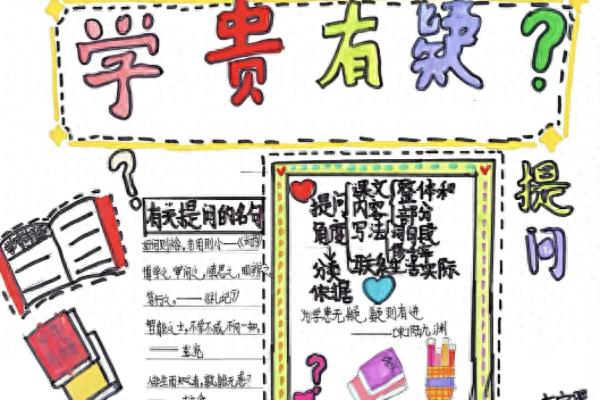 学贵有疑?
提问
有关提问的名句
好问则裕,自用则小——《尚书》
博学之,审问之,慎思之,明辨之
笃行之。——《礼记》
智能之士,不学不成,不问不知。
——王充
人非生而知之者,孰能无惑?
提问
角度
课文
内容
写法
联系生活实际
整体和
部分
词句段
分类
依据
为学患无疑,疑则有进
——[宋]陆九渊